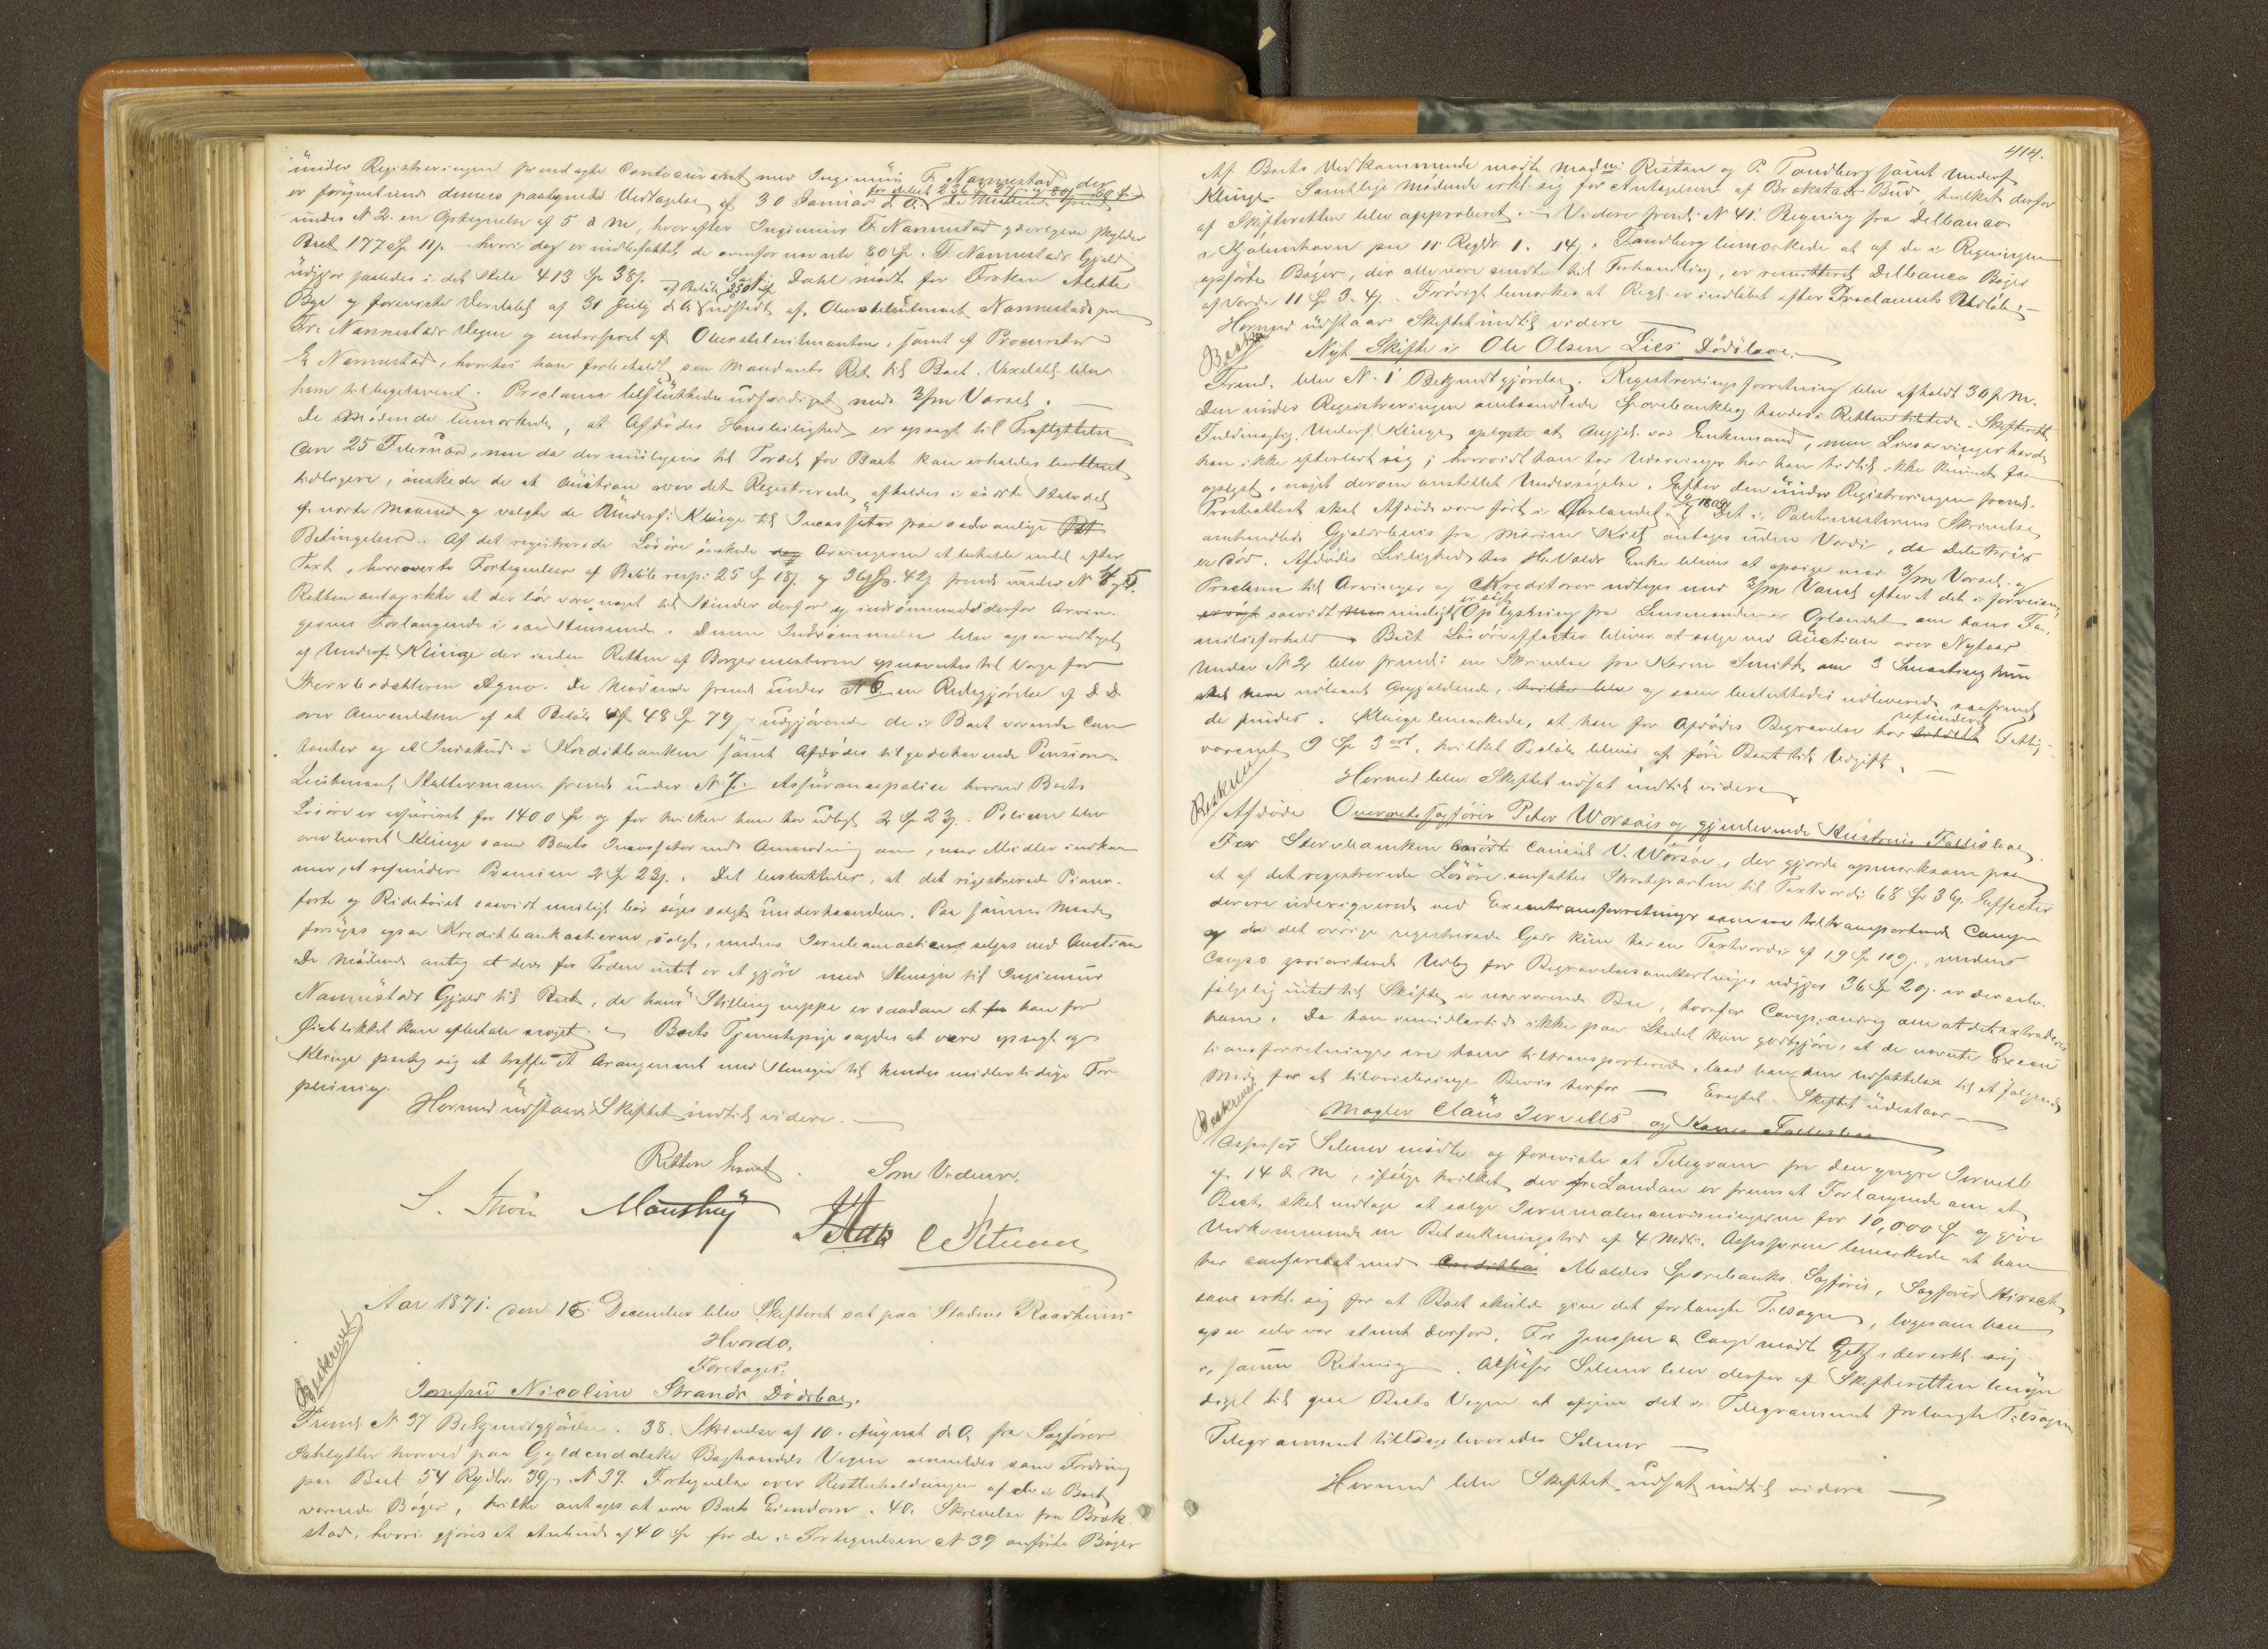 under Registreringen fremlagte Contocourant med Ingeniør F. Nannestad der
er forsynet med dennes paategnede Vedtagelse af 30 Januar d. A. for debet 236 Sp 27 s
under N 2. en Optegnelse af 5 d M, hvorefter Ingeniør F. Nannestad yderligere skylder
Boet 177 Sp 11 s. hvori dog er indbefattet de ovenfor nævnte 80 Sp. F. Nannestads Gjæld
udgjør saaledes i det Hele 413 Sp 38 s. Sagf. Dahl mødte for Frøken Alette
Bye og foreviste Vexelobl. af 31 Juli d A udstedt af Oberstleutenant Nannestad paa
Fr. Nannestads Vegne og endosseret af Oberstleitnanten, samt af Procurator
E Nannestad, hvortil han forbeholdt sin Mandants Ret til Boet. Vexelobl. blev
ham tilbageleveret. Proclama besluttedes udfærdiget med 3/m Varsel.
De Mødende bemærkede, at Afdødes Huusleilighed er opsagt til Fraflyttelse
den 25 Februar, men da der muligens til Fordel for Boet kan erholdes bortleiet
tidligere, ønskede de at Auction over det Registrerede afholdes i første Halvdel
af næste Maaned og valgte de Underf: Klinge til Incassator paa sædvanlige
Betingelser. Af det registrerede Løsøre ønskede Arvingerne at beholde endel efter
Taxt, hvorover to Fortegnelser af Beløb resp: 25 Sp 18 s. og 36 Sp. 42 s freml. under N 4 og 5.
Retten antog ikke at der bør være noget til Hinder derfor og indrømmedes derfor Arvin-
gernes Forlangende i saa Henseende. Denne Indrømmelse blev ogsaa vedtaget
af Underf. Klinge der inden Retten af Borgermesteren opnævntes til Værge for
Stervbodatteren Agnes. De Mødende fremld under N 6 en Redegjørelse af D. D.
over Anvendelsen af et Beløb af 48 Sp 79 s udgjørende de i Boet værende Con-
tanter og et Indskud i Kreditbanken samt Afdødes tilgodehavende Pension.
Leutenant Haltermann fremld under N 7. Assuranspolice hvorved Boets
Løsøre er assureret for 1400 Sp og for hvilken han har udlagt 2 Sp 23 s. Policen blev
overleveret Klinge som Boets Incassator med Anmodning om, naar Midler indkom-
mer, at refundere Præmien 2 Sp 23 s. Det besluttedes, at det registrerede Piano-
forte og Ridetøiet saavidt muligt bør søges solgt underhaanden. Paa samme Maade
forsøges ogsaa Kreditbankactierne solgt, medens Jernbaneactierne selges ved Auction
De Mødende antog at der for Tiden intet er at gjøre med Hensyn til Ingeniør
Nannestads Gjæld til Boet, da hans Stilling neppe er saadan at han for
Øieblikket kan afbetale noget. Boets Tjenestepige sagdes at være opsagt og
Klinge paatog sig at træffe et Arangement med Hensyn til hendes midlertidige For-
pleining.
Hermed udstaar Skiftet indtil videre.
Retten hævet.
Som Vidner.
Aar 1871. den 16. December blev Skifteret sat paa Stadens Raadhuus
Hvorda,
Foretages:
Beskrevet
Jomfru Nicoline Strands Dødsboe.
Fremld N 37 Bekjendtgjørelse. 38. Skrivelse af 10. August d A fra Sagfører
Dahl hvorved paa Gyldendalske Boghandels Vegne anmeldes som Fordring
paa Boet 54 Rigsdlr. 39 s. N 39. Fortegnelse over Restbeholdningen af de i Boet
værende Bøger, hvilke antages at være Boets Eiendom. 40. Skrivelse fra Bræk-
stad, hvori gjøres et Anbud af 40 Sp for de i Fortegnelsen N 39 anførte Bøger
414.
Af Boets Vedkommende mødte Mad. Ristan og P. Tandberg samt Underf
Klinge. Samtlige Mødende erkl. sig for Antagelsen af Brækstads Bud, hvilket derfor
af Skifteretten blev approberet. Videre fremld: N 41. Regning fra Delbanco
i Kjøbenhavn paa 11 Rigdr. 1. 14 s. Tandberg bemærkede at af de i Regningen
opførte Bøger, der alle vare sendte til Forhandling, er remitteret Delbanco Bøger
af Værdi 11 Sp 3. 4 s. Forøvrigt bemærkes at Regn. er indløbet efter Proclamas Udløb.
Hermed udstaar Skiftet indtil videre
Beskr
Nyt Skifte i Ole Olsen Lies Dødsboe.
Fremld. blev N. 1 Bekjendtgjørelse. Registreringsforretning blev afholdt 30 p M.
Den under Registreringen omhandlede Sparebankbog havdes i Retten tilstede. Skifterettens
Fuldmægtig, Underf. Klinge oplyste at Angjel. var Enkemand, men Livsarvinger havde
han ikke efterladt sig; hvorvidt han har Udarvinger har han hidtil ikke kunnet faa
oplyst, uagtet derom anstillet Undersøgelse. Efter den under Registreringen fremld.
Præsteattest skal Afdøde være født i Ørlandet 1809. Det i Politimesterens Skrivelse
omhandlede Gjældsbevis fra Marine Kiel antages uden Værdi, da Debitrice
er død. Afdødes Leilighed hos H. Valds Enke bliver at opsige med 3/m Varsel. og
Proclama til Arvinger og Kreditorer udtages med 3/m Varsel efter at det i forveien
saavidt muligt er søgt Oplysning fra Lensmanden i Ørlandet om hans Fa-
milieforhold. Boets Løsøreeffecter bliver at sælge ved Auction over Nytaar
Under N 2 blev fremld: en Skrivelse fra Karen Smith om 3 Smaating hun
skal have udlaant Angjældende, og som besluttedes udleverede saafremt
de findes. Klinge bemærkede, at han for Afdødes Begravelse har refunderet Fattig-
væsenet 9 Sp 3 ort, hvilket Beløb bliver at føre Boet til Udgift.
Hermed blev Skiftet udsat indtil videre
Beskrevet
Afdøde Overretssagfører Peter Worsøes og gjenlevende Hustrues Fallisboe.
For Stervbanken mødte Camil V. Worsøe, der gjorde opmærksom paa
at af det registrerede Løsøre omfattes Størsteparten til Taxtværdi 68 Sp 36 s. Effecter
der ere udexiqverede ved Executionsforretninger som ere tiltransporterede Comp.
og da det øvrige registrerede Gods kun har en Taxtværdi af 19 Sp 109 s., medens
Comps prioriterede Udlæg for Begravelsesomkostninger udgjør 36 Sp 20 s. er der selv-
følgelig intet til Skifte i nærværende Bo, hvorfor Comp. androg om at det extraderes
ham. Da han imidlertid ikke paa Stedet kan godtgjøre, at de nævnte Execu-
tionsforretninger ere ham tiltransporterede, bad han om Udsættelse til et følgende
Møde for at tilveiebringe Bevis herfor — Eragtet. Skiftet udestaar —
Beskrevet
Mægler Claus Jervells og Kones Fallisboe
Assessor Selmer mødte og foreviste et Telegram fra den yngre Jervell
af 14 d M, ifølge hvilket der fra London er fremsat Forlangende om at
Boets skal vedtage at sælge Jernmalmanvisningerne for 10,000 Sp og give
Vedkommende en Betænkningstid af 4 Mdr. Assessoren bemærkede at han
har confereret med Meldals Sparebanks Sagfører, Sagfører Hirsch
som erkl. sig for at Boet skulde give det forlangte Tilsagn, ligesom han
ogsaa selv var stemt derfor. For Jenssen & Comp mødte Getz, der erkl. sig
i samme Retning. Assessor Selmer blev derfor af Skifteretten bemyn-
diget til paa Boets Vegne at afgive det i Telegrammet forlangte Tilsagn
Telegrammet tilbageleveredes Selmer —
Hermed blev Skiftet udsat indtil videre —